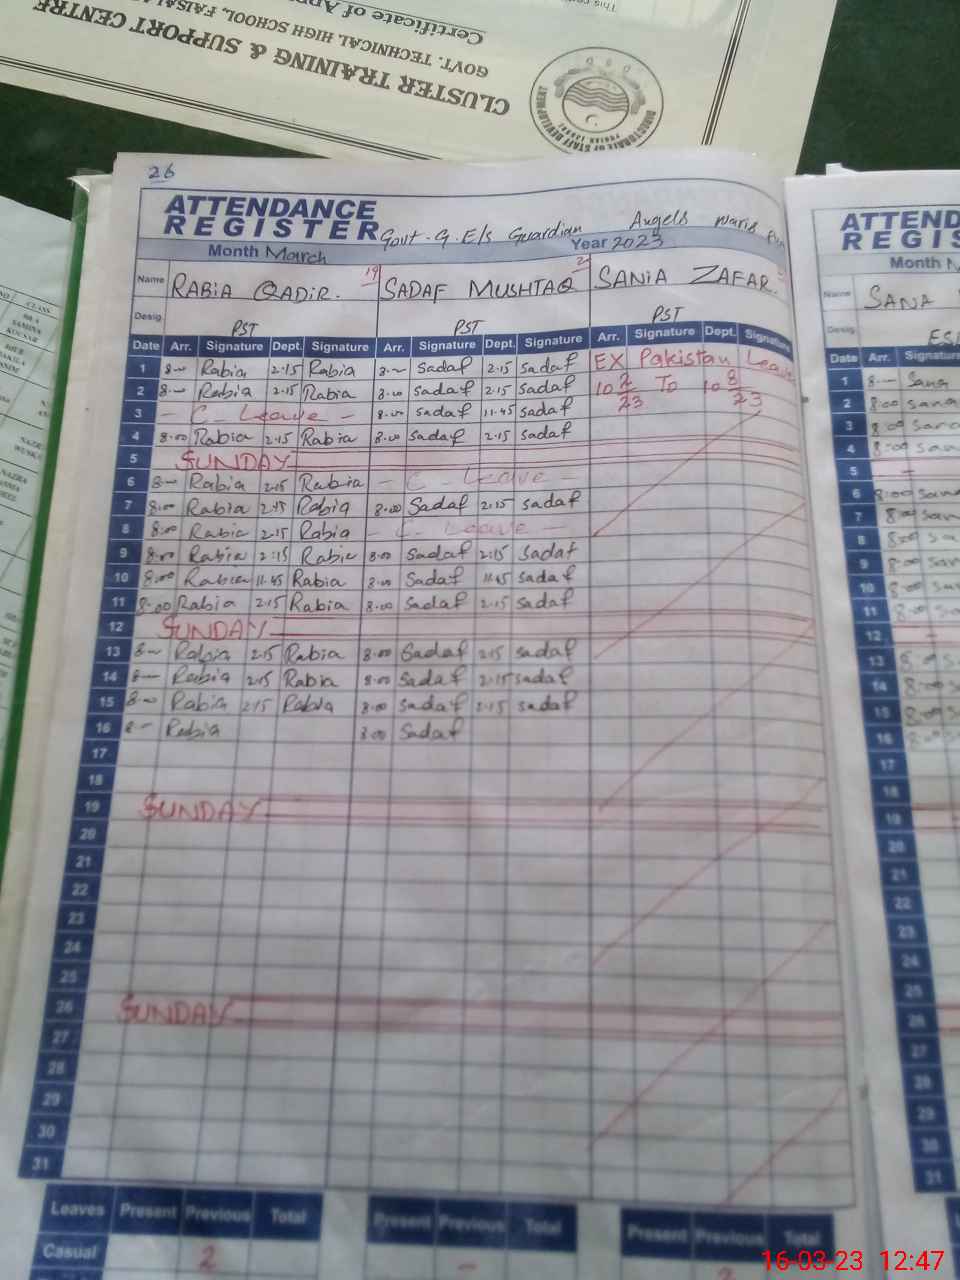 This
Certificate of
GOVT. TECHNICAL HIGH SCHOOL, FAISAL
CLUSTER TRAINING & SUPPORT CENTRE
DIRECTORATE OF STAFF DEVELOPMENT
26
ATTENDANCE
REGISTER
Govt. G. E/s Guardian Angels
Month March Year 2023
Name RABIA QADIR. 19 SADAF MUSHTAQ SANIA ZAFAR.
Desig. PST PST PST
Date Arr. Signature Dept. Signature Arr. Signature Dept. Signature Arr. Signature Dept. Signature
1 8-- Rabia 2.15 Rabia 8.-- Sadaf 2.15 Sadaf EX Pakistan Leave
2 8-- Rabia 2.15 Rabia 8.00 Sadaf 2.15 Sadaf 10 2/23 To 10 8/23
3 - C. Leave - 8.00 Sadaf 11.45 Sadaf
4 8.00 Rabia 2.15 Rabia 8.00 Sadaf 2.15 Sadaf
5 SUNDAY
6 8-- Rabia 2.15 Rabia - C. Leave -
7 8.00 Rabia 2.15 Rabia 8.00 Sadaf 2.15 Sadaf
8 8.00 Rabia 2.15 Rabia - C. Leave -
9 8.00 Rabia 2.15 Rabia 8.00 Sadaf 2.15 Sadaf
10 8.00 Rabia 11.45 Rabia 8.00 Sadaf 11.45 Sadaf
11 8.00 Rabia 2.15 Rabia 8.00 Sadaf 2.15 Sadaf
12 SUNDAY
13 8-- Rabia 2.15 Rabia 8.00 Sadaf 2.15 Sadaf
14 8-- Rabia 2.15 Rabia 8.00 Sadaf 2.15 Sadaf
15 8-- Rabia 2.15 Rabia 8.00 Sadaf 2.15 Sadaf
16 8-- Rabia 8.00 Sadaf
17
18
19 SUNDAY
20
21
22
23
24
25
26 SUNDAY
27
28
29
30
31
Leaves Present Previous Total Present Previous Total Present Previous Total
Casual 2 -
ATTEND
REGIS
Month
Name SANA
Desig.
Date Arr. Signature
1 8-- Sana
2 8.00 Sana
3 8.00 Sana
4 8.00 Sana
5
6 8.00 Sana
7 8.00 San
8 8.00
9 8.00 San
10 8.00 San
11 8.00 San
12
13
14 8.00
15 8.00
16
17
18
19
20
21
22
23
24
25
26
27
28
29
30
31
CLASS
SAMINA
KOUSAR
16-03-23 12:47